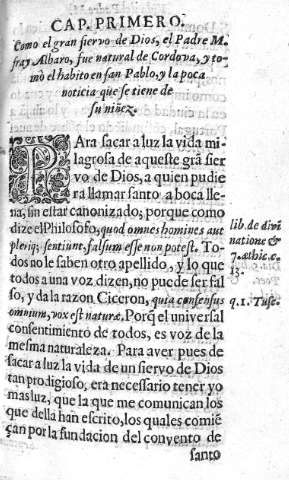 CAP. PRIMERO.
Como el gran siervo de Dios, el Padre M.
fray Albaro, fue natural de Cordova, y to-
mò el habito en san Pablo, y la poca
noticia que se tiene de
su niñez.
PAra sacar a luz la vida mi-
lagrosa de aqueste grã sier
vo de Dios, a quien pudie
ra llamar santo a boca lle-
na, sin estar canonizado, porque como
dize el Philosofo, quod omnes homines aut
pleriq; sentiunt, falsum esse non potest. To-
dos no le saben otro apellido, y lo que
todos a una voz dizen, no puede ser fal
so, y da la razon Ciceron, quia consensus
omnium, vox est naturæ. Porq̃ el universal
consentimiento de todos, es voz de la
mesma naturaleza. Para aver pues de
sacar a luz la vida de un siervo de Dios
tan prodigioso, era necessario tener yo
mas luz, que la que me comunican los
que della han escrito, los quales comiẽ
çan por la fundacion del convento de
santo
lib. de divi
natione &
7. æthic. c.
13.
q. 1. Tusc.